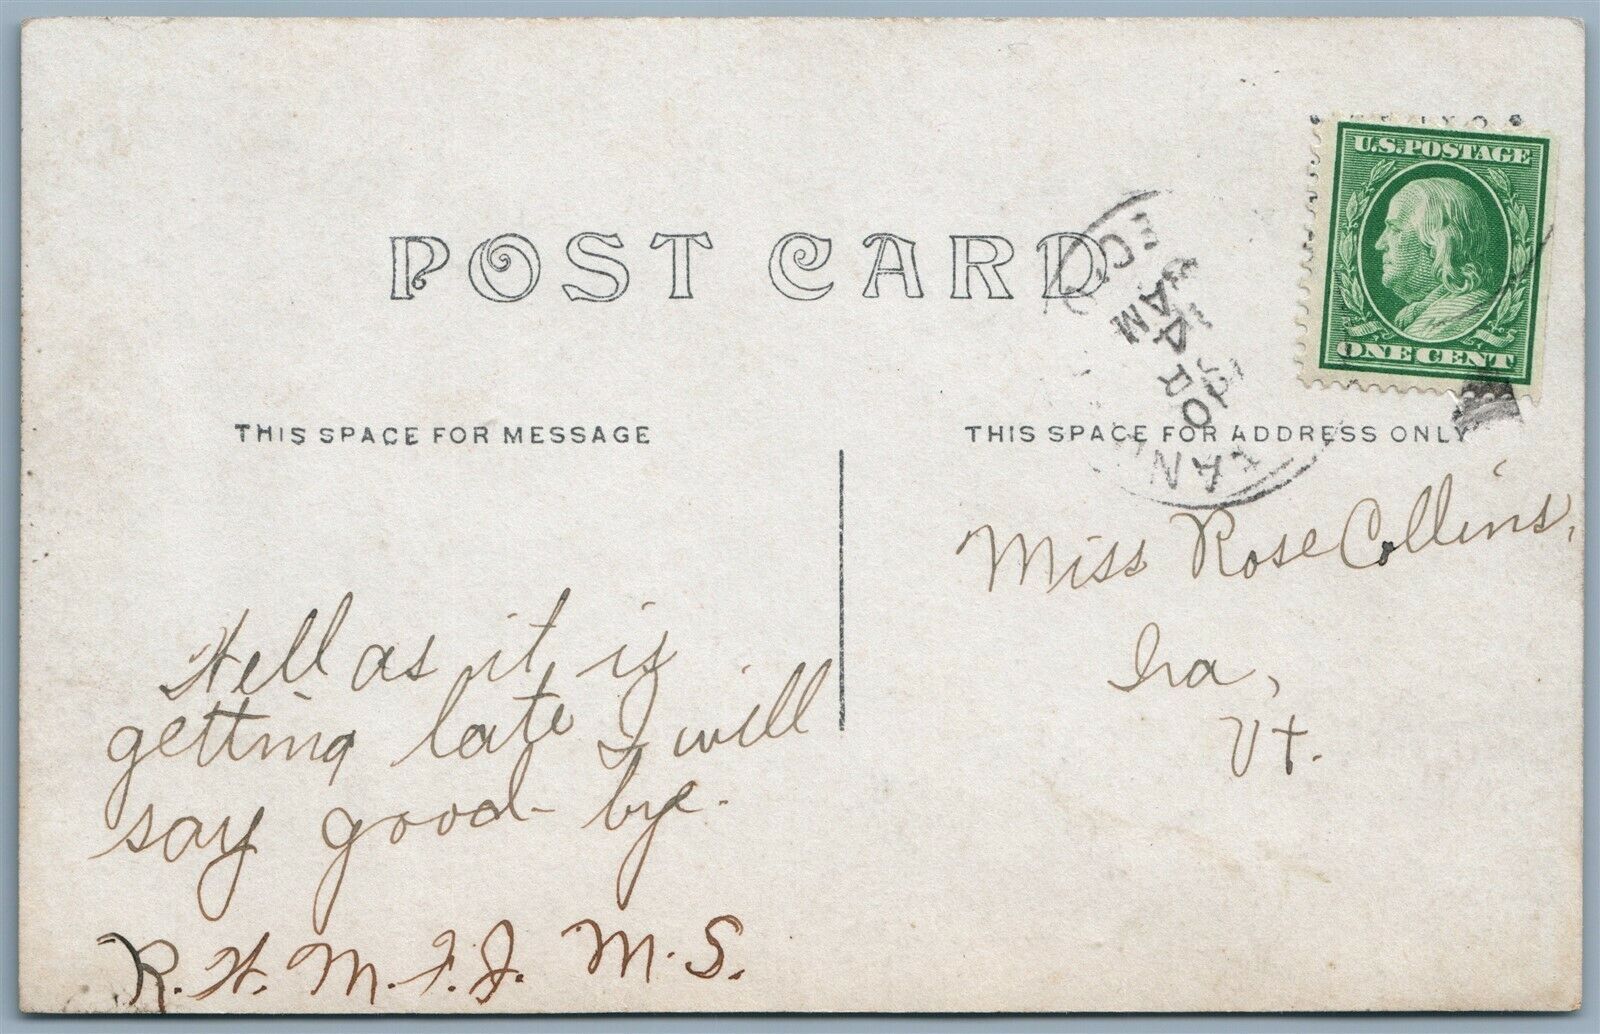 U.S. POSTAGE
ONE CENT
POST CARD
DEC
14
3 AM
THIS SPACE FOR MESSAGE
THIS SPACE FOR ADDRESS ONLY
Miss Rose Collins,
Ira,
Vt.
Well as it is
getting late I will
say good-bye.
R. H. M. F. J. M. S.